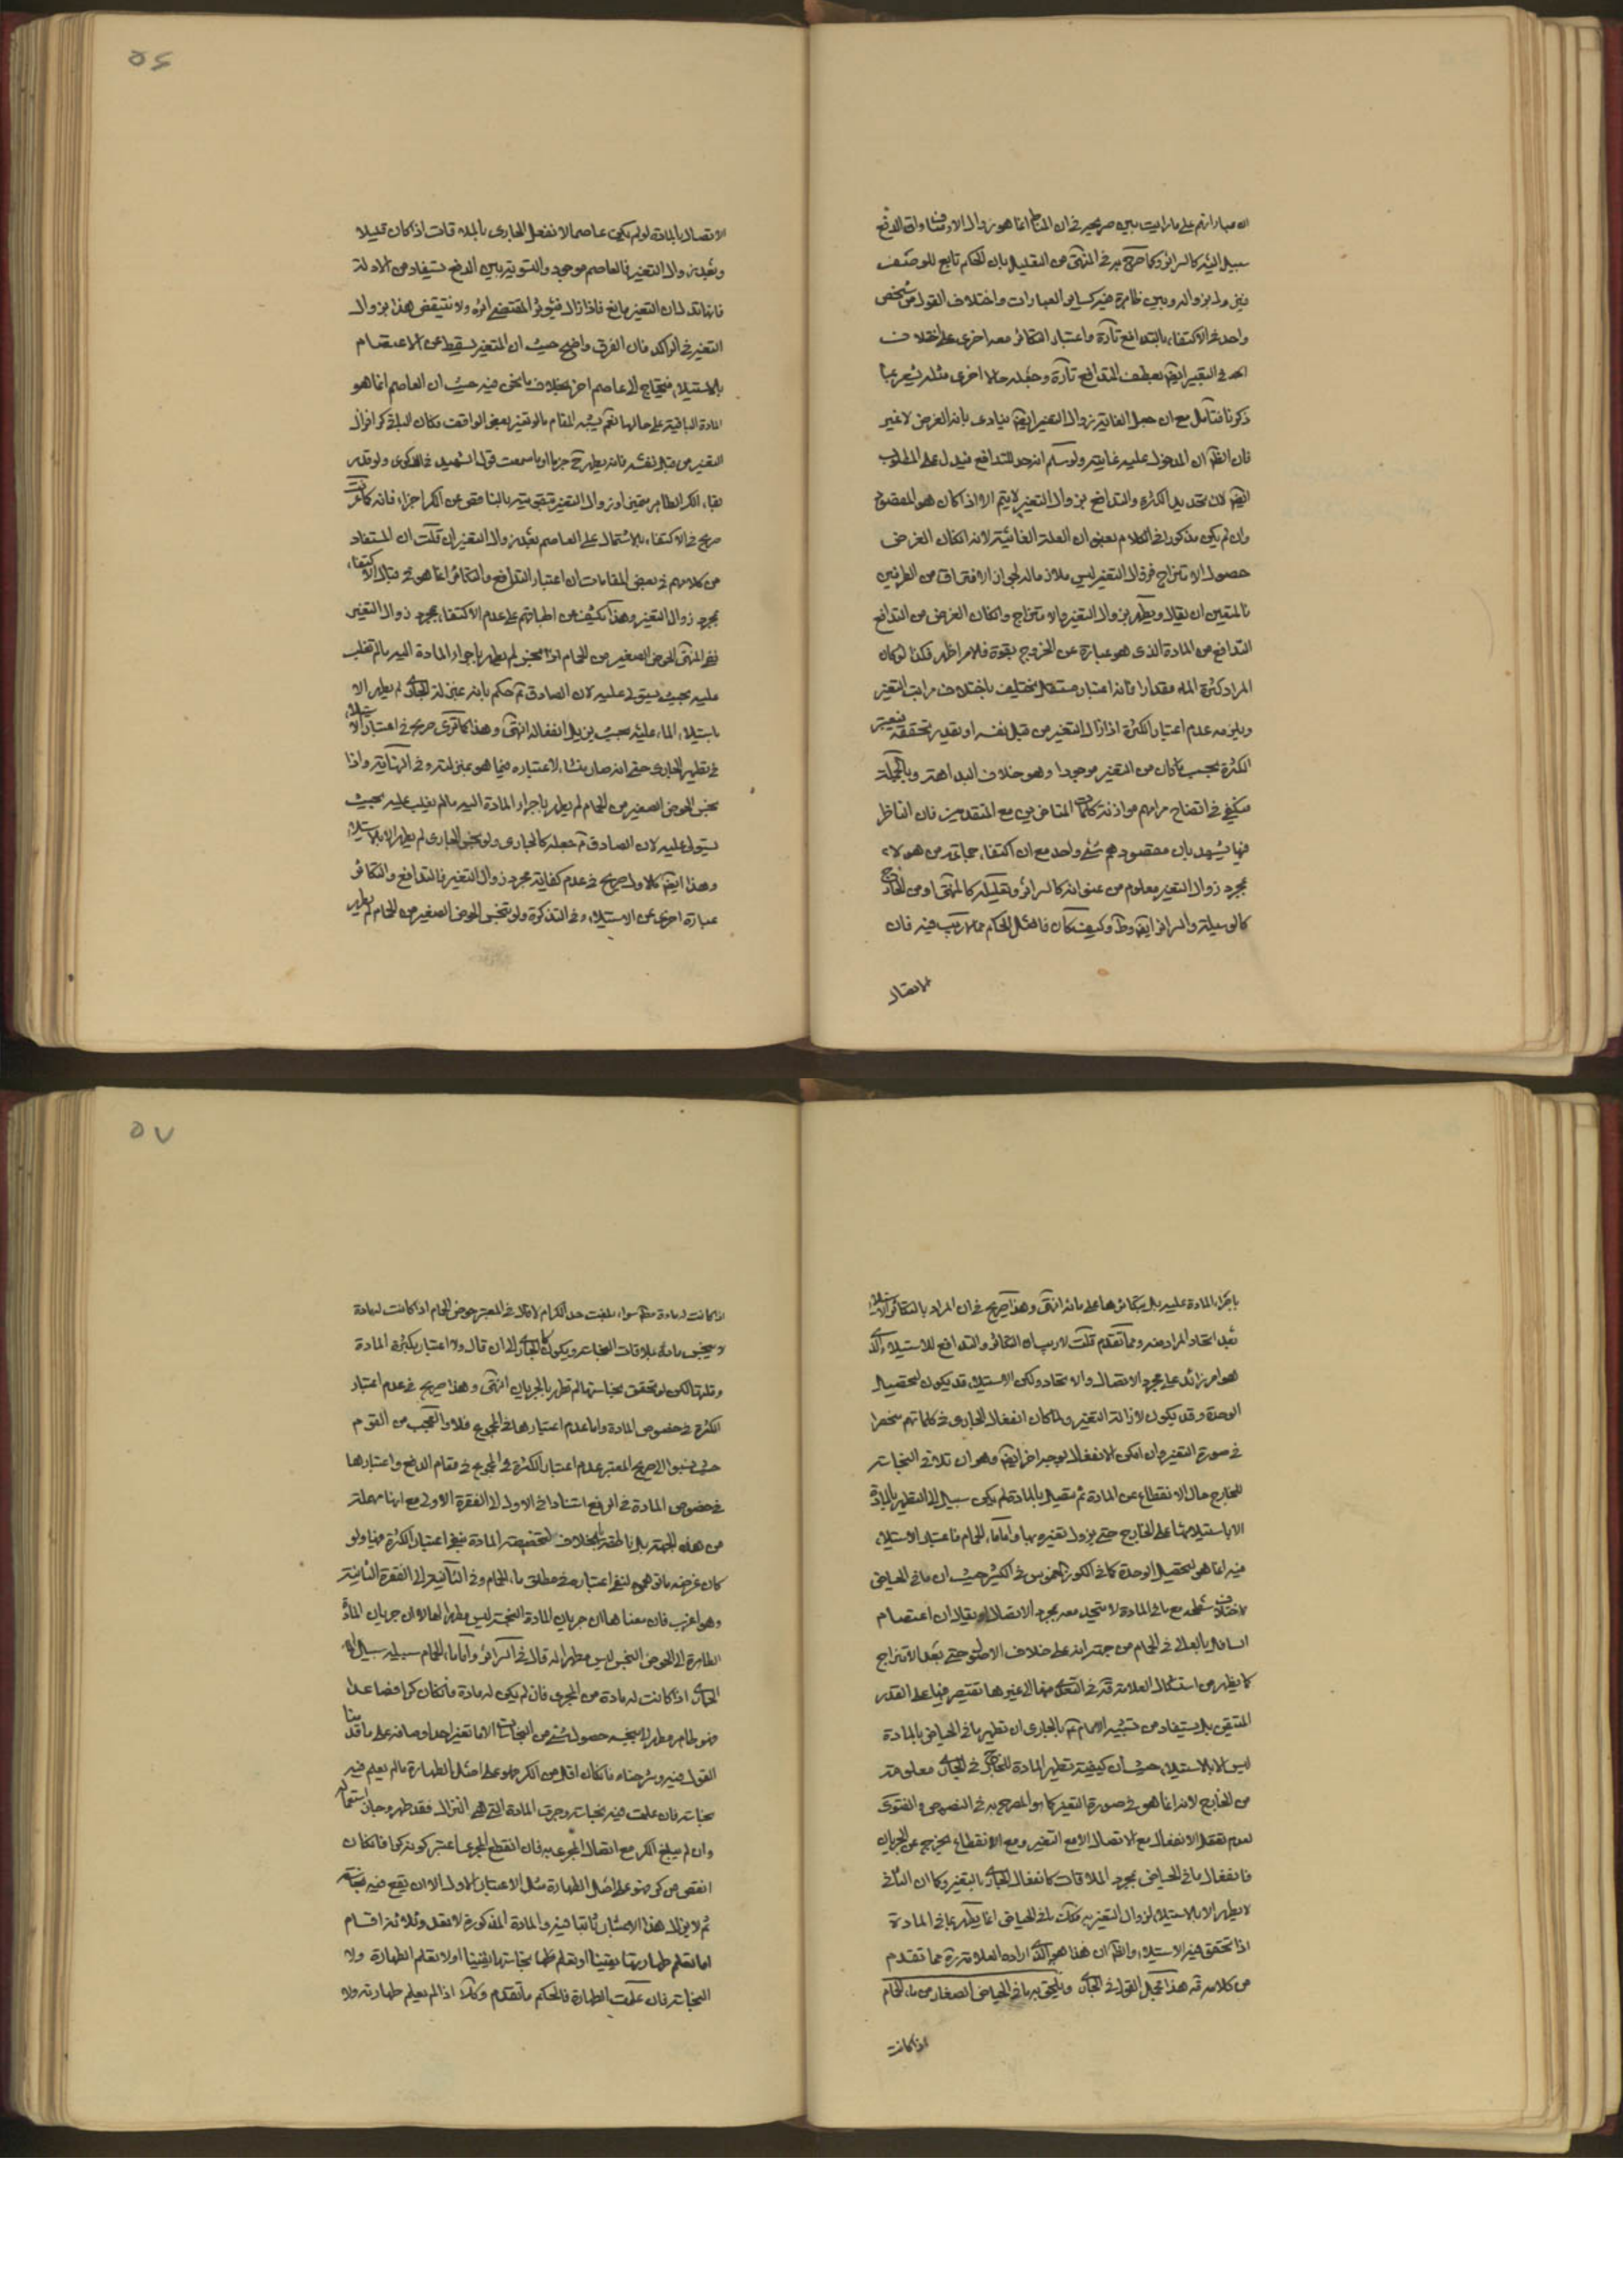 ان عباراتهم على ما رايت بين صريح في ان المناط انما هو زوال الاوصاف وان الدفع
سبيل اليه كالسرائر وكما صرح به في المنتهى من التعليل بان الحكم تابع للوصف
فيزول بزواله وبين ظاهرة فيه كساير العبارات واختلاف القول من شخص
واحد في الاكتفاء بالتدافع تارة واعتبار التكاثر معه اخرى على اختلاف
في التعبير ايضا بعطف التدافع تارة وجعله حالا اخرى مثله يشعر بما
ذكرنا فتأمل مع ان جعل الغاية زوال التغير ايضا ينادى بانه الغرض لا غير
فان الظ ان المدخول عليه غاية ولو سلم انه حد للتدافع فيدل على المطلوب
ايضا لان تحديد الكثرة والتدافع بزوال التغير لا يتم الا اذا كان هو المقصود
وان لم يكن مذكورا في الكلام بعنوان العلة الغائية لانه ان كان الغرض
حصول الامتزاج فزوال التغير ليس ملازما له لجواز الافتراق من الطرفين
فالمتعين ان يقال ويطهر بزوال التغير والامتزاج وان كان الغرض من التدافع
التدافع من المادة الذى هو عبارة عن الخروج بقوة فالامر اظهر فكذا لو كان
المراد كثرة الماء مقدارا فانه اعتبار مستقل يختلف باختلاف مراتب التغير
ويلزمه عدم اعتبار الكثرة اذا زال التغير من قبل نفسه او تقدير تحققه فيعتبر
الكثرة بحسب ما كان من التغير موجودا وهو خلاف البداهة وبالجملة
فيكفي في اتضاح مرامهم موازنة كلمات المتاخرين مع المتقدمين فان الناظر
فيها يشهد بان مقصودهم شئ واحد مع ان اكتفاء جماعة من هؤلاء
بمجرد زوال التغير معلوم من عنوانه كالسرائر وتعليله كالمنتهى ومن الخارج
كالوسيلة والسرائر ايضا وط وكيف كان فاصل الحكم مما لا ريب فيه فان
الاتصال
الاتصال بالمادة لو لم يكن عاصما لانفعل الجارى بالملاقات اذا كان قليلا
وبعد زوال التغير فالعاصم موجود والتسوية بين الدفع والرفع يستفاد من الادلة
فانها تدل ان التغير مانع فاذا زال فيؤثر المقتضى اثره ولا ينتقض هذا بزوال
التغير في الراكد فان الفرق واضح حيث ان المتغير يسقط عن الاعتصام
بالاستيلاء فيحتاج الى عاصم اخر بخلاف ما نحن فيه حيث ان العاصم انما هو
المادة الباقية على حالها نعم يشبه المقام ما لو تغير بعض الواقف وكان الباقى كرا فزال
التغير من قبل نفسه فانه يطهر ح جزما او ما سمعت قول الشهيد في الذكرى ولو قدر
بقاء الكر الطاهر متميزا وزوال التغير بتقويته بالناقص عن الكر اجزأ فانه كما عرفت
صريح في الاكتفاء بالاشتمال على العاصم بعد زوال التغير ان قلت ان المستفاد
من كلامهم في بعض المقامات ان اعتبار التدافع والتكاثر انما هو في قبال الاكتفاء
بمجرد زوال التغير وهذا يكشف عن اطباقهم على عدم الاكتفاء بمجرد زوال التغير
ففي المنتهى الحوض الصغير من الحمام اذا نجس لم يطهر باجراء المادة اليه ما لم تغلب
عليه بحيث يستولي عليه لان الصادق ع حكم بانه بمنزلة الجارى ولو تنجس الجارى لم يطهر الا
باستيلاء الماء عليه بحيث يزيل انفعاله انتهى وهذا كما ترى صريح في اعتبار الاستيلاء
في تطهير الجارى حتى انه صار منشاء لاعتباره فيما هو بمنزلته وفي النهاية واذا
نجس الحوض الصغير من الحمام لم يطهر باجراء المادة اليه ما لم يغلب عليه بحيث
يستولى عليه لان الصادق ع جعله كالجارى ولو نجس الجارى لم يطهر الا بالاستيلاء
وهذا ايضا كالاول صريح في عدم كفاية مجرد زوال التغير فالتدافع والتكاثر
عبارة اخرى عن الاستيلاء وفي التذكرة ولو تنجس الحوض الصغير من الحمام لم يطهر
٥٦
باجراء المادة عليه بل بتكاثرها على مائه انتهى وهذا صريح في ان المراد بالتكاثر الاستيلاء
بعد اتحاد المراد منه ومما تقدم قلت لا ريب ان التكاثر والتدافع للاستيلاء الذى
هو امر زائد على مجرد الاتصال والاتحاد ولكن الاستيلاء قد يكون لتحصيل
الوحدة وقد يكون لازالة التغير ولما كان انفعال الجارى في كلماتهم منحصرا
في صورة التغير وان امكن الانفعال بوجه اخر ايضا وهو ان تلاقى النجاسة
للخارج حال الانقطاع عن المادة ثم يتصل بالمادة لم يكن سبيل الى التطهير بالمادة
الا باستيلائها على الخارج حتى يزول تغيره بها واما ماء الحمام فاعتبار الاستيلاء
فيه انما هو لتحصيل الوحدة كما في الكوز المغموس في الكثير حيث ان ما في الحياض
لاختلاف سطحه مع ما في المادة لا يتحد معه بمجرد الاتصال او يقال ان اعتصام
السافل بالعالى في الحمام من جهة انه على خلاف الاصول حتى بعد الامتزاج
كما يظهر من استشكال العلامة قده في التعدى منها الى غيرها نقتصر فيها على القدر
المتيقن بل يستفاد من تشبيه الامام ع بالجارى ان تطهير ما في الحياض بالمادة
ليس الا بالاستيلاء حيث ان كيفية تطهير المادة للخارج في الجارى معلومة
من الخارج لانه انما هو في صورة التغير كما هو المصرح به في النصوص والفتوى
لعدم تعقل الانفعال مع الاتصال الا مع التغير ومع الانقطاع يخرج عن الجريان
فانفعال ما في الحياض بمجرد الملاقات كانفعال الجارى بالتغير وكما ان الثانى
لا يطهر الا بالاستيلاء لزوال التغير به فكذلك ما في الحياض انما يطهر بما في المادة
اذا تحقق فيه الاستيلاء والظ ان هذا هو الذى اراده العلامة ره مما تقدم
من كلامه قده هذا مجمل القول في الجارى ويلحق به ما في الحياض الصغار من ماء الحمام
اذا كانت
اذا كانت له مادة سواء بلغت حد الكر ام لا قال في المعتبر حوض الحمام اذا كانت له مادة
لا ينجس ماؤه بملاقات النجاسة ويكون كالجارى الى ان قال ولا اعتبار بكثرة المادة
وقلتها لكن لو تحقق نجاستها لم تطهر بالجريان انتهى وهذا صريح في عدم اعتبار
الكثرة في خصوص المادة واما عدم اعتبارها في المجموع فلا والعجب من القوم
حيث نسبوا الى صريح المعتبر عدم اعتبار الكثرة في المجموع في مقام الدفع واعتبارها
في خصوص المادة في الرفع استنادا في الاول الى الفقرة الاولى مع انها مهملة
من هذه الجهة بل ناطقة بخلافه لتخصيصه المادة بنفى اعتبار الكثرة فيها ولو
كان غرضه ما توهم لنفى اعتباره في مطلق ماء الحمام وفي الثانى الى الفقرة الثانية
وهو اغرب فان معناها ان جريان المادة النجسة ليس مطهرا لها لا ان جريان المادة
الطاهرة الى الحوض النجس ليس مطهرا له قال في السرائر واما ماء الحمام سبيله سبيل الماء
الجارى اذا كانت له مادة من المجرى فان لم يكن له مادة فان كان كرا فصاعدا
فهو طاهر مطهر لا ينجسه حصول شئ من النجاسات الا ما تغير احد اوصافه على ما قدمنا
القول فيه وشرحناه فان كان اقل من الكر فهو على اصل الطهارة ما لم يعلم فيه
نجاسة فان علمت فيه نجاسة وجرت المادة التي هي البزال فقد طهر وجاز استعماله
وان لم يبلغ الكر مع اتصال المجرى به فان انقطع المجرى اعتبر كونه كرا فان كان
انقص من كر فهو على اصل الطهارة مثل الاعتبار الاول الا ان يقع فيه نجاسة
ثم لا يزال هذا الاعتبار ثابتا فيه والمادة المذكورة لا تعدو ثلاثة اقسام
اما تعلم طهارتها يقينا او تعلم نجاستها يقينا او لا تعلم الطهارة ولا
النجاسة فان علمت الطهارة فالحكم ما تقدم وكذلك اذا لم يعلم طهارته ولا
٥٧